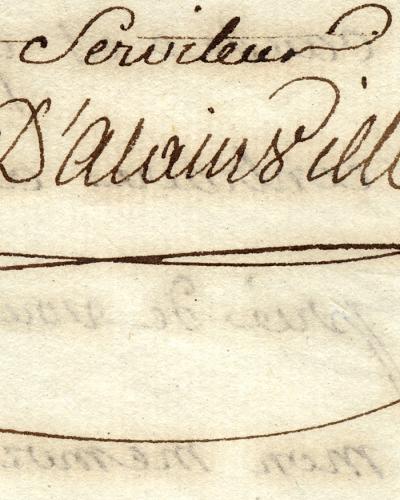 Serviteur
D'alainvill